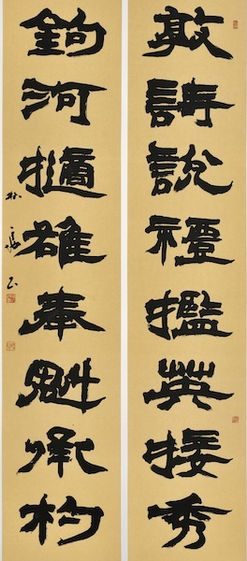 敦詩說禮㩜英接秀
鉤河擿雒奉魁承杓